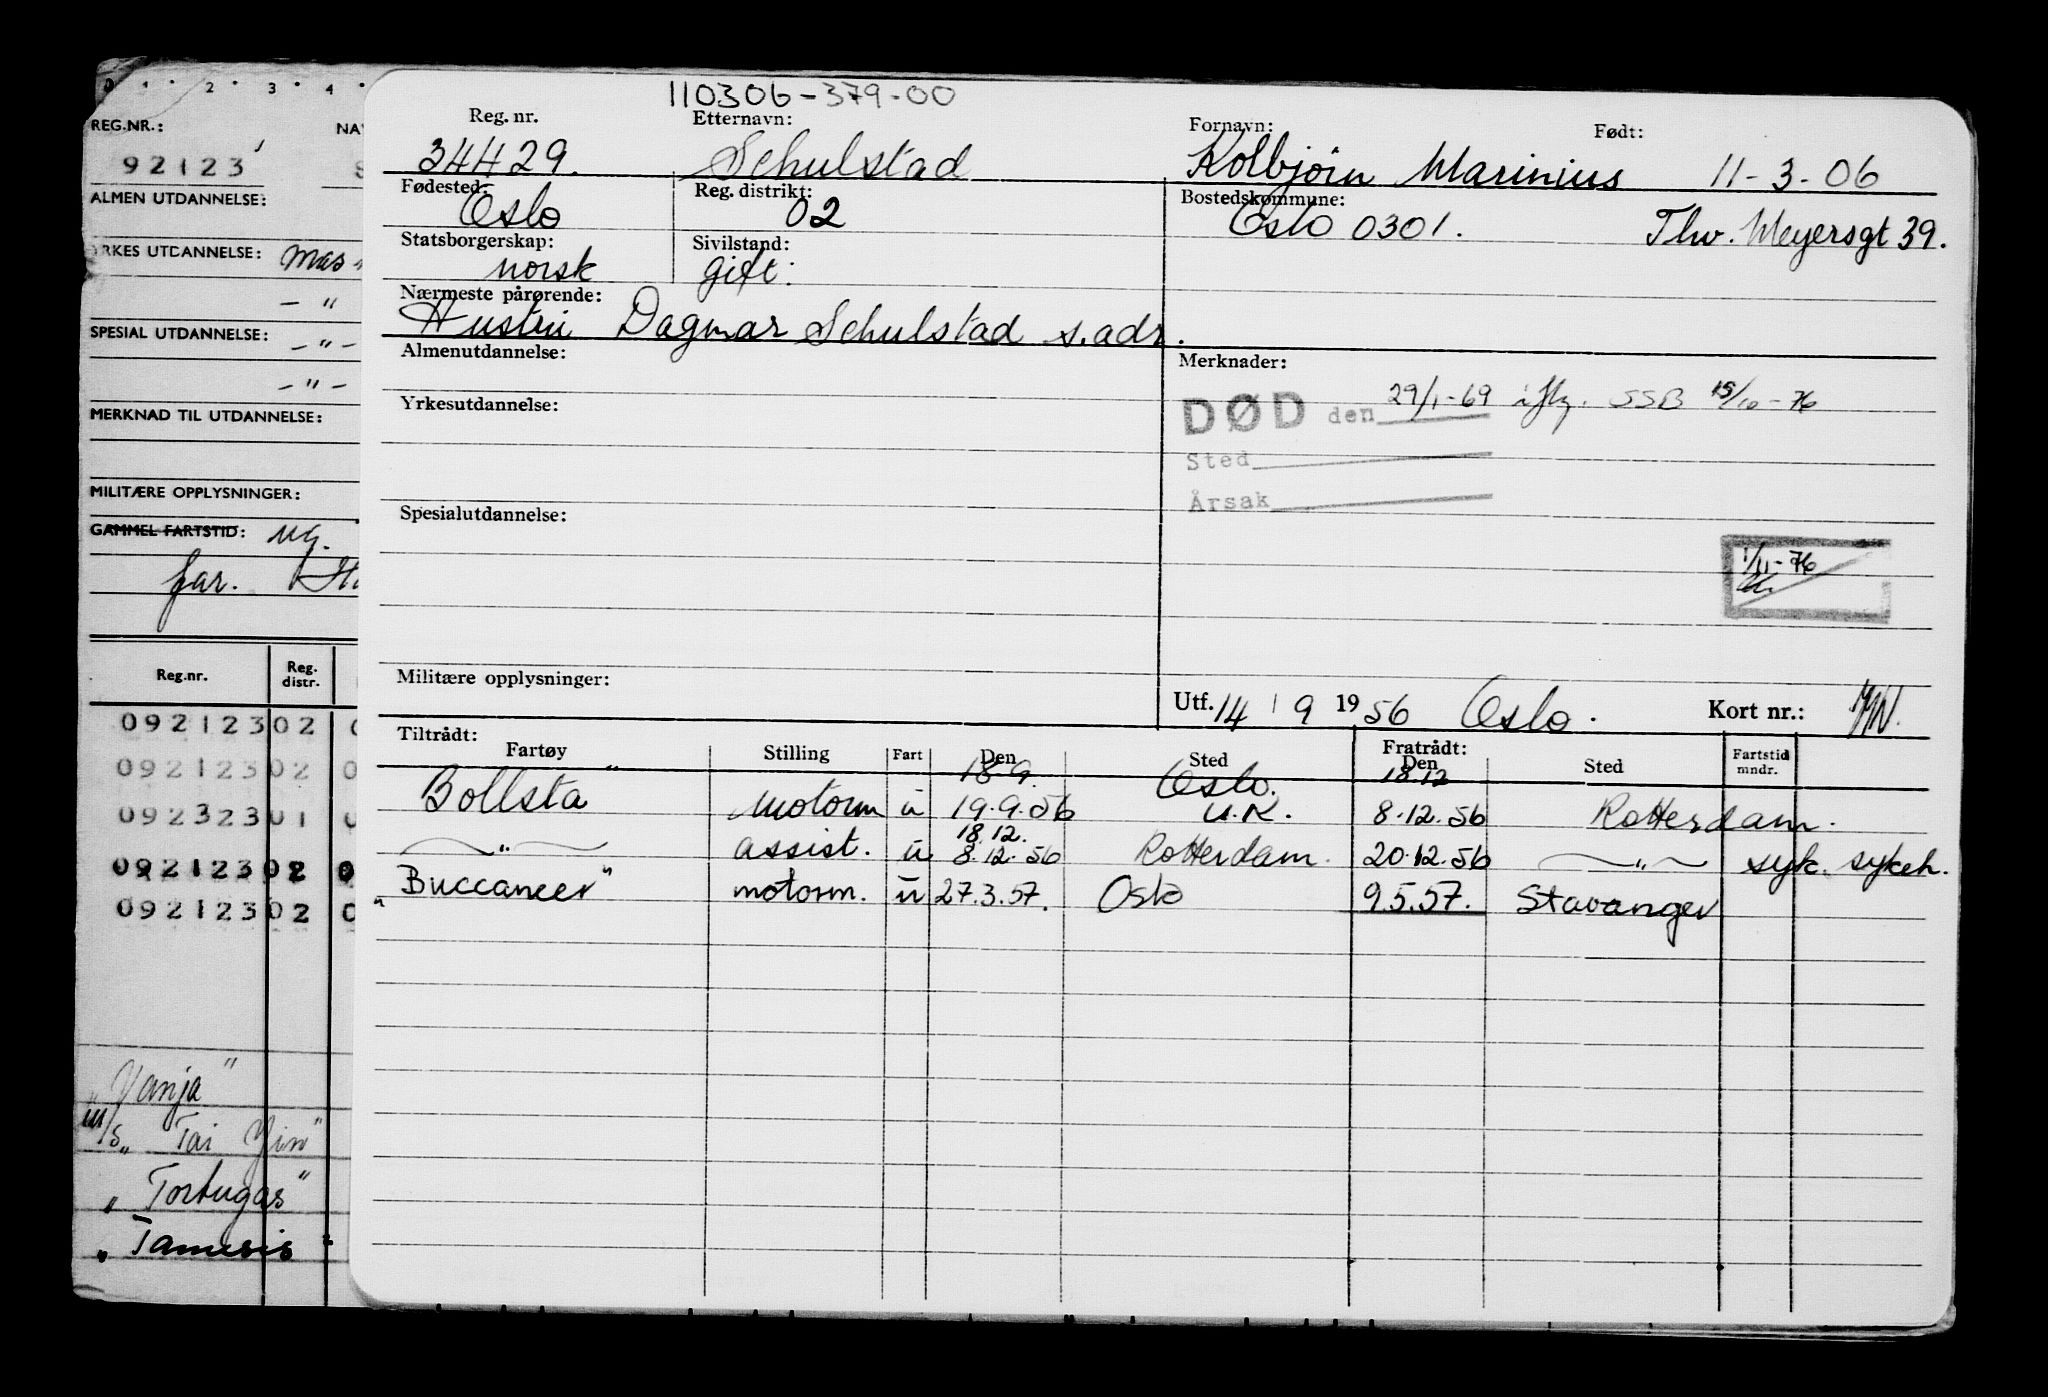 0 1 2 3 4
REG.NR.: NA
92123 S
ALMEN UTDANNELSE:
YRKES UTDANNELSE: Mas
- " 
SPESIAL UTDANNELSE: - " -
- " -
MERKNAD TIL UTDANNELSE:
MILITÆRE OPPLYSNINGER:
GAMMEL FARTSTID: ug.
far.
Reg.nr. Reg. distr.
092123 02 0
092123 02 0
092323 01 0
092123 02 0
092123 02 0
"Vanja"
m/s "Tai Yin"
"Tortugas"
"Tamesis"
110306-379-00
Reg. nr. Etternavn: Fornavn: Født:
34429. Schulstad Kolbjörn Marinius 11-3-06
Fødested: Reg. distrikt: Bostedskommune:
Oslo 02 Oslo 0301. Thv. Meyersgt 39.
Statsborgerskap: Sivilstand:
norsk gift.
Nærmeste pårørende:
Hustru Dagmar Schulstad s.adr.
Almenutdannelse: Merknader:
DØD den 29/1-69 iflg. SSB 15/10-76
Yrkesutdannelse:
Sted
Årsak
Spesialutdannelse:
1/11-76
Militære opplysninger:
Utf. 14 / 9 1956 Oslo. Kort nr.:
Tiltrådt: Fratrådt:
Fartøy Stilling Fart Den Sted Den Sted Fartstid mndr.
18-9. Oslo. 18.12
Bollsta" motorm u 19.9.56 U.K. 8.12.56 Rotterdam.
18.12.
—"— assist. u 8.12.56 Rotterdam. 20.12.56 —"— syk. sykeh.
"Buccaneer" motorm. u 27.3.57. Oslo 9.5.57. Stavanger